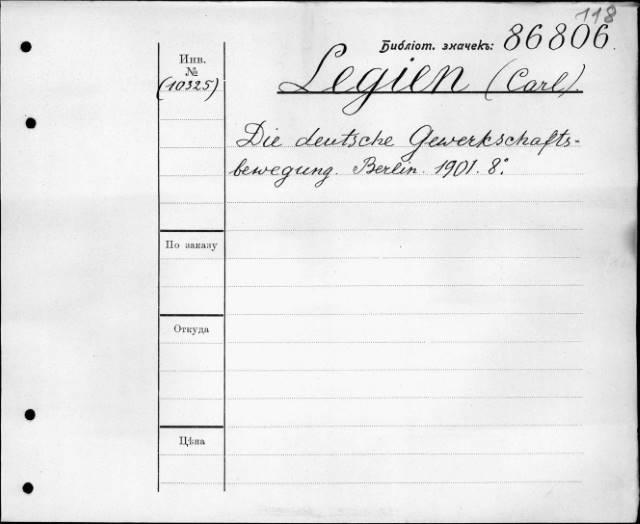 118
Библіот. значекъ: 86806.
Инв.
№
(10325)
Legien (Carl).
Die deutsche Gewerkschafts-
bewegung. Berlin. 1901. 8°.
По заказу
Откуда
Цѣна